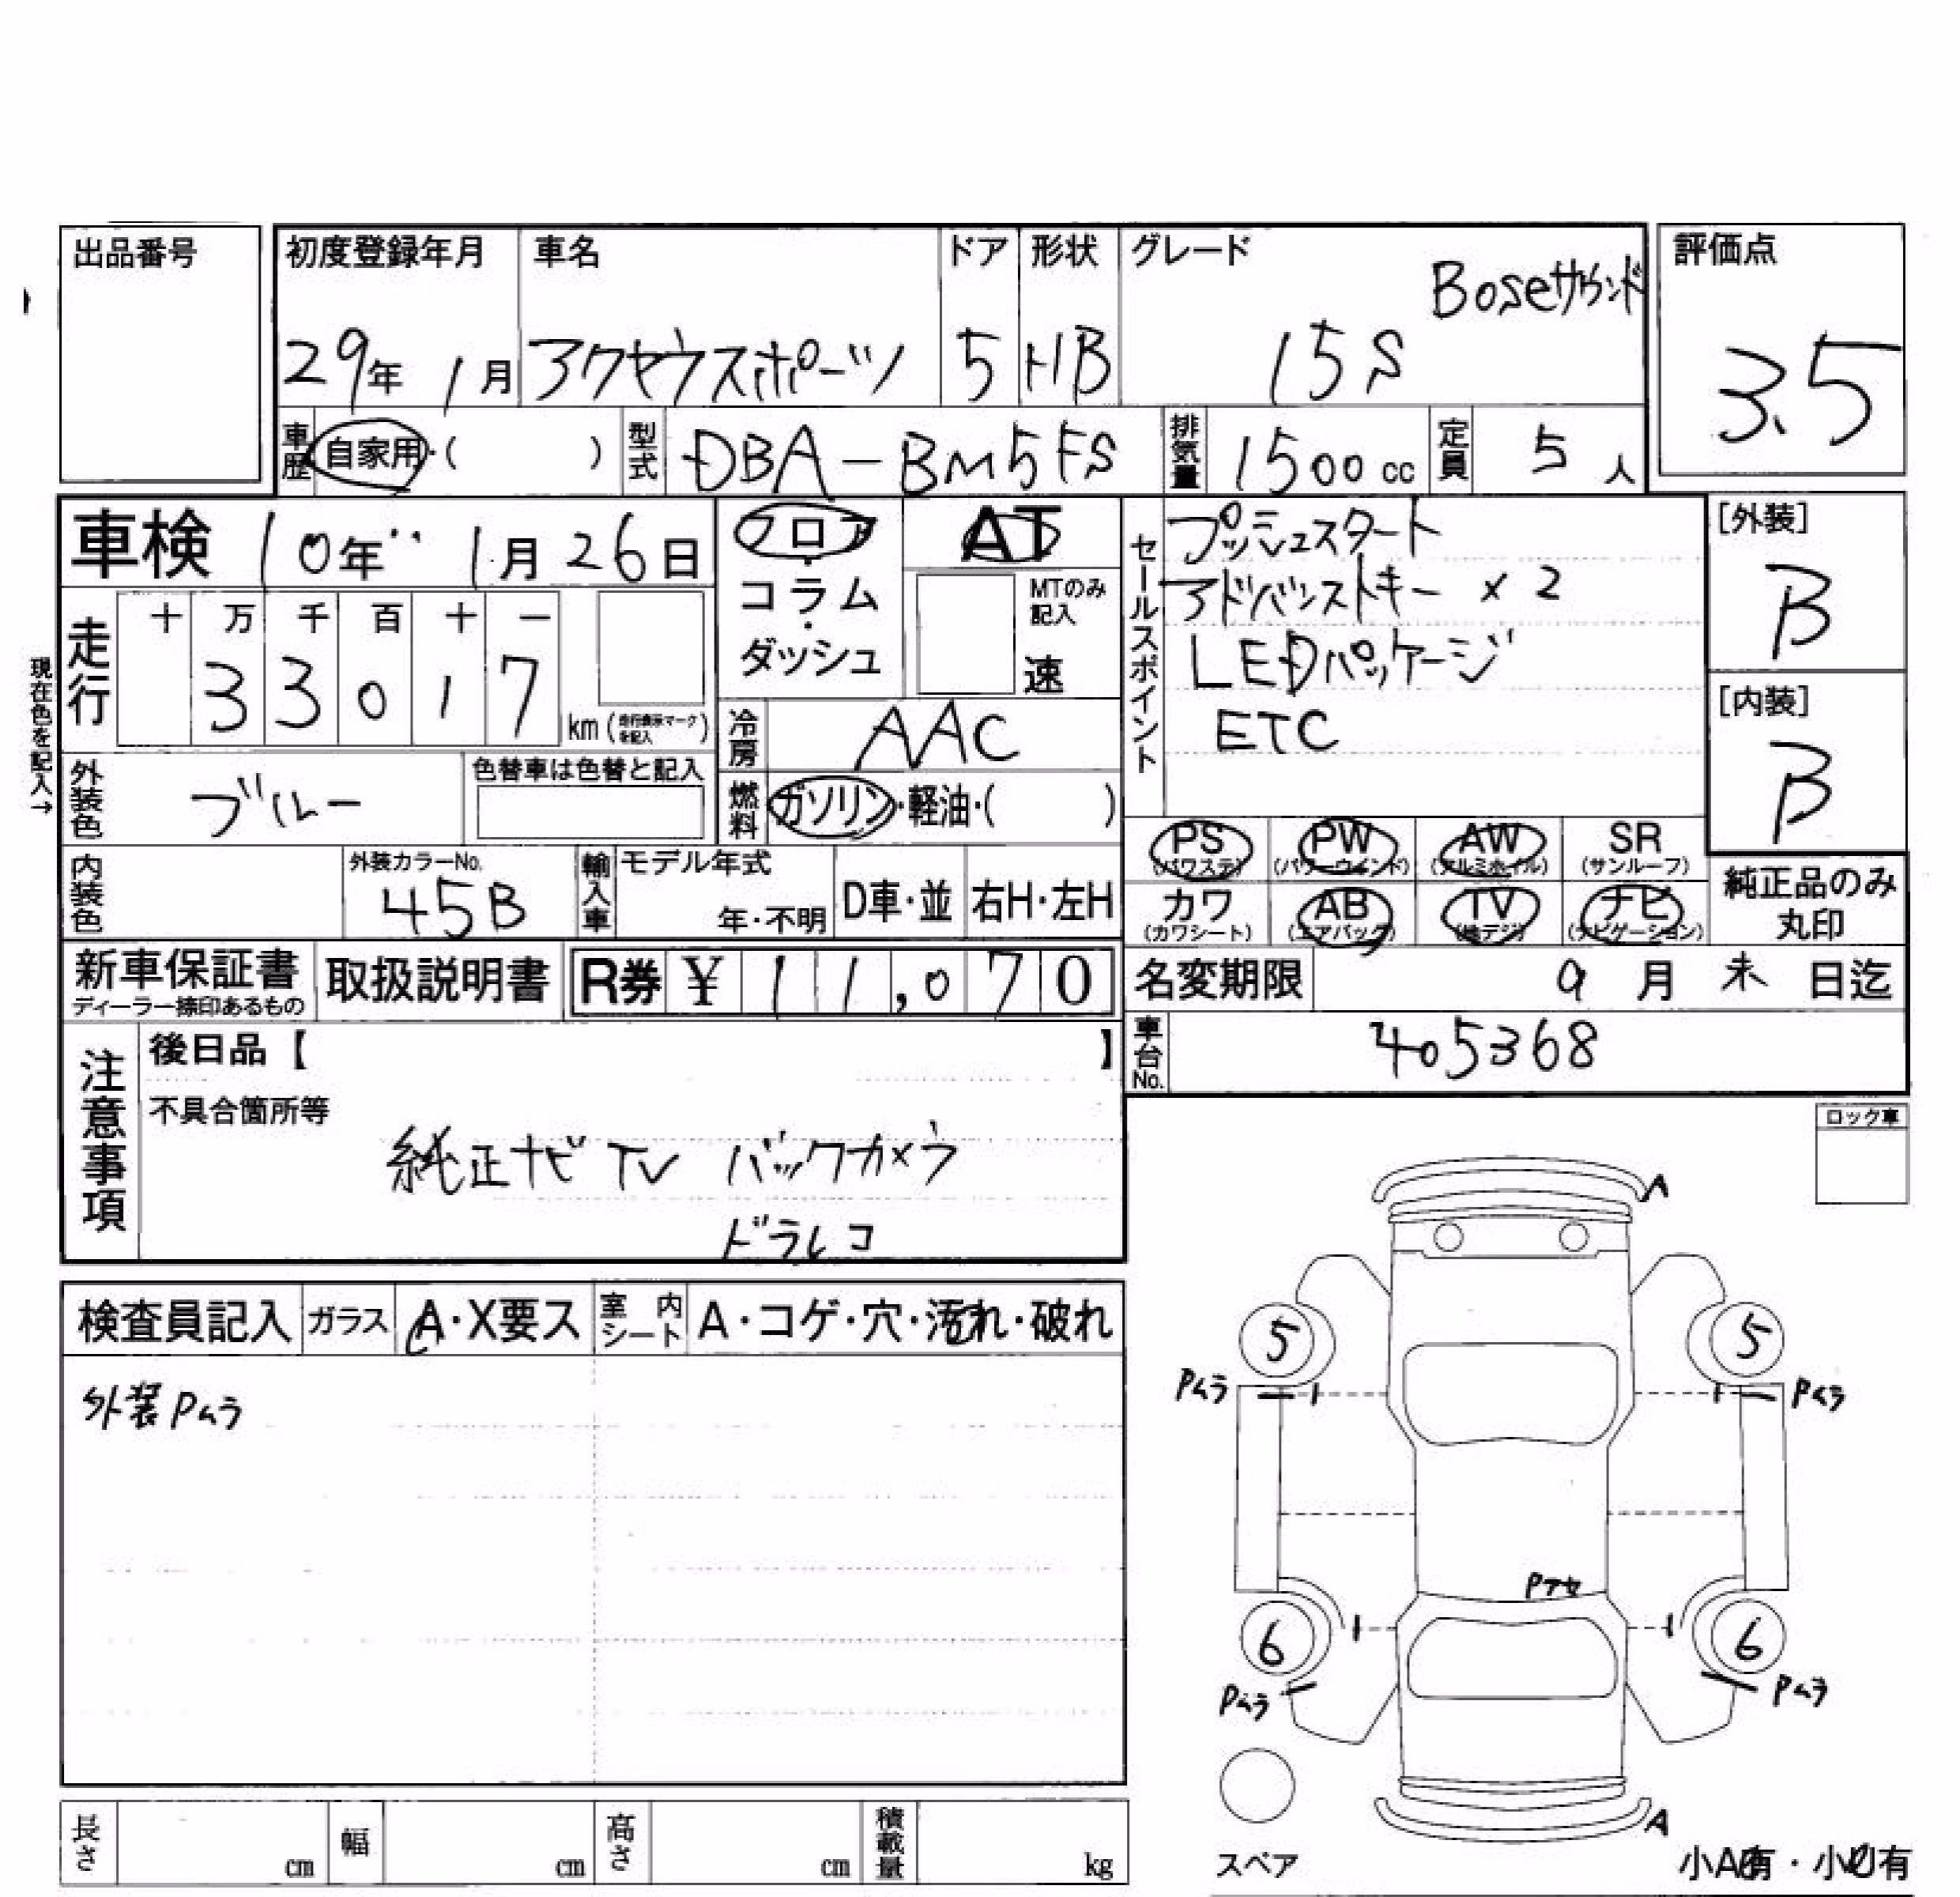 出品番号
初度登録年月 車名 ドア 形状 グレード 評価点
Boseサウンド
29年 1月 アクセラスポーツ 5 HB 15S 3.5
車歴 自家用・( ) 型式 DBA-BM5FS 排気量 1500cc 定員 5人
車検 10年 1月 26日 フロア AT
・コラム・ MTのみ記入
ダッシュ 速
セールスポイント
プッシュスタート
アドバンストキー ×2
LEDパッケージ
ETC
[外装]
B
[内装]
B
走行 十 万 千 百 十 一
33017
km (走行表示マークを記入)
現在色を記入→
冷房 AAC
外装色 ブルー 色替車は色替と記入
燃料 ガソリン・軽油・( )
PS PW AW SR
(パワステ) (パワーウインド) (アルミホイル) (サンルーフ)
カワ AB TV ナビ
(カワシート) (エアバッグ) (地デジ) (ナビゲーション)
純正品のみ
丸印
内装色 外装カラーNo. 45B 輸入車 モデル年式 年・不明 D車・並 右H・左H
新車保証書 取扱説明書 R券 ¥ 11,070
ディーラー捺印あるもの
名変期限 9月 末 日迄
車台No. 405368
注意事項
後日品【 】
不具合箇所等
純正ナビ TV バックカメラ
ドラレコ
ロック車
検査員記入 ガラス A・X要ス 室内シート A・コゲ・穴・汚れ・破れ
外装Pムラ
A
5 5
Pムラ Pムラ
Pアセ
6 6
Pムラ Pムラ
A
スペア
小A有・小U有
長さ cm 幅 cm 高さ cm 積載量 kg